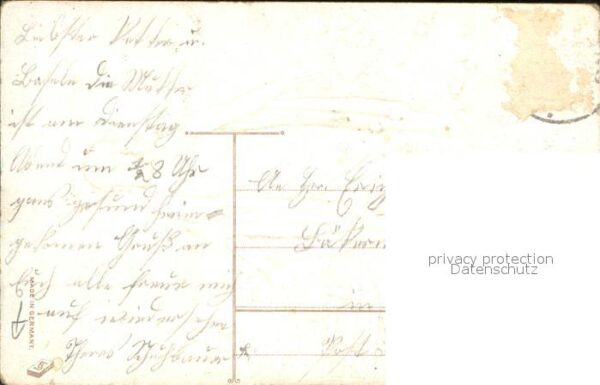 Liebster Vetter u.
Basele die Mutter
ist am Dienstag
Abend um 1/2 8 Uhr
ganz gesund heim-
gekomen Gruß an
Euch alle freue mich
auf wiedersehn
MADE IN GERMANY.
An Hr.
in
Post
privacy protection
Datenschutz